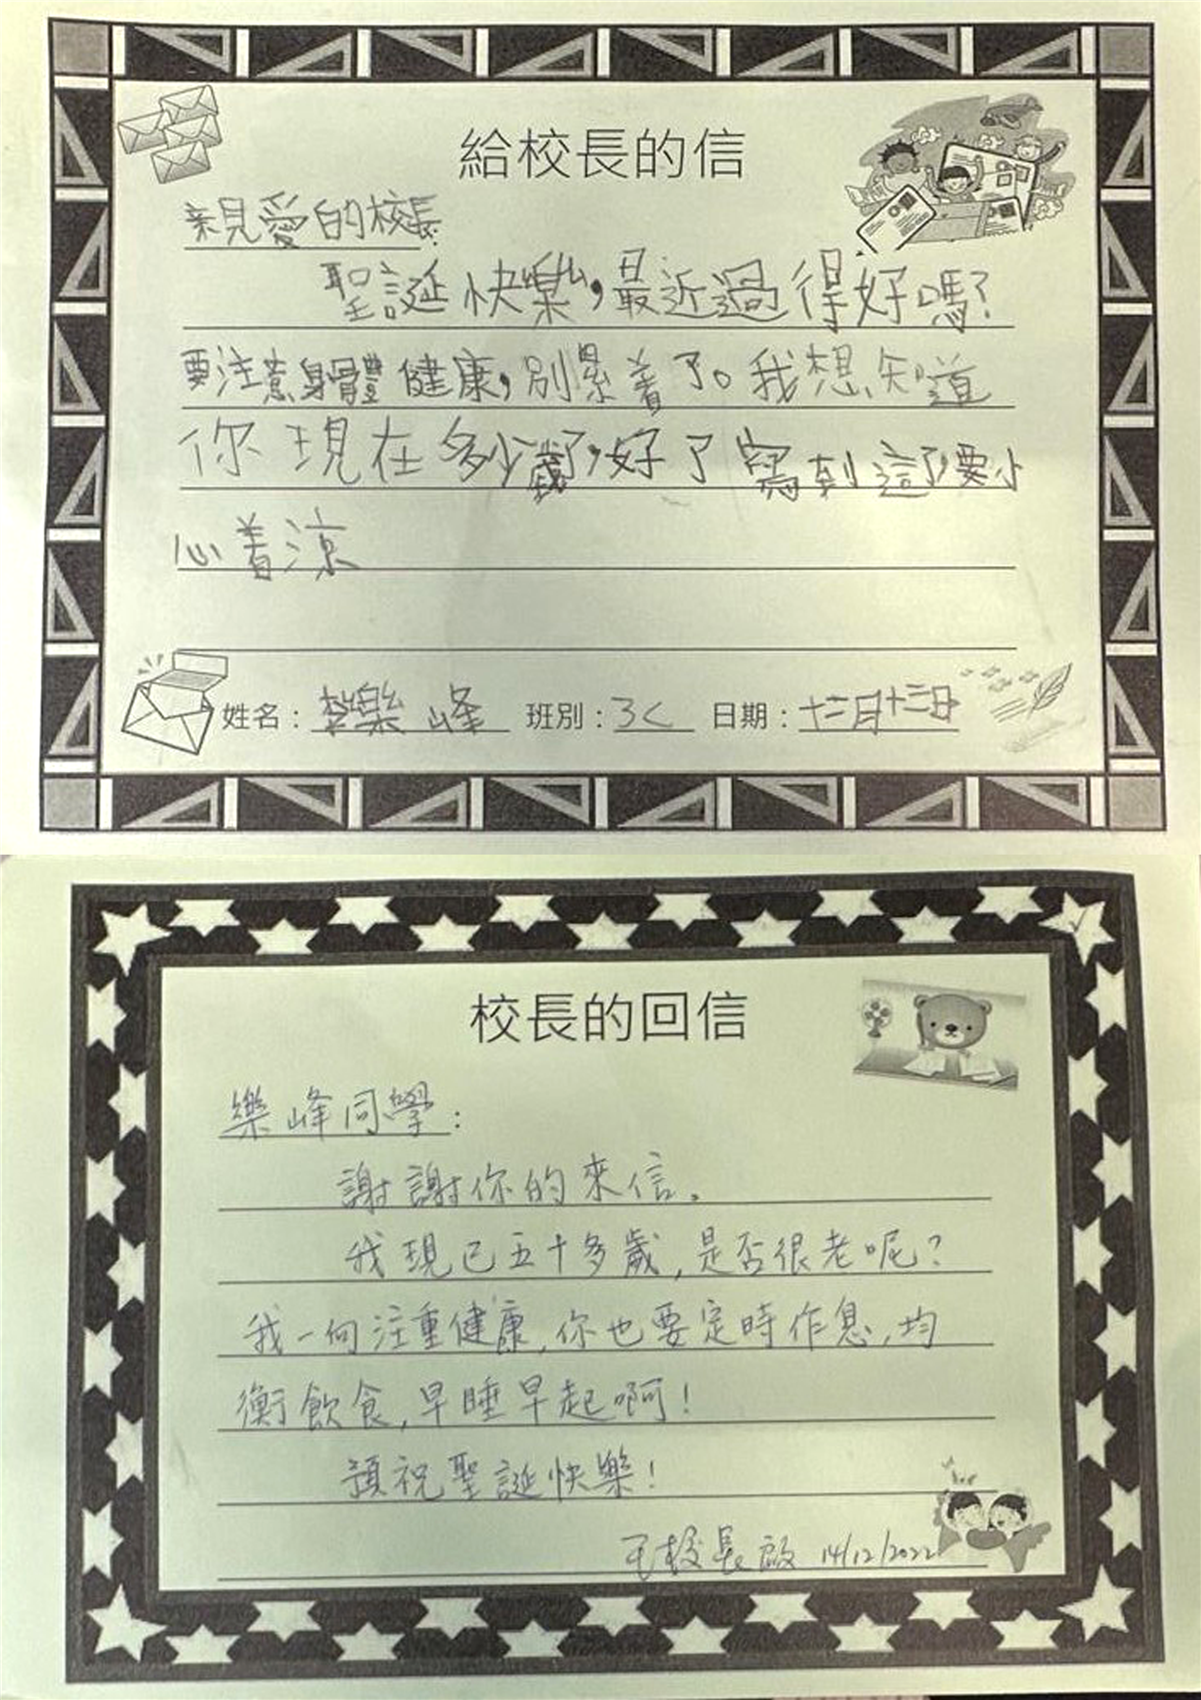 給校長的信
親愛的校長:
聖誕快樂,最近過得好嗎?
要注意身體健康,別累着了。我想知道
你現在多少歲了,好了寫到這了,要小
心着涼
姓名：樂峰 班別：3C 日期：十二月十三日
校長的回信
樂峰同學:
謝謝你的來信。
我現已五十多歲,是否很老呢?
我一向注重健康,你也要定時作息,均
衡飲食,早睡早起啊!
預祝聖誕快樂!
校長啟 14/12/2022